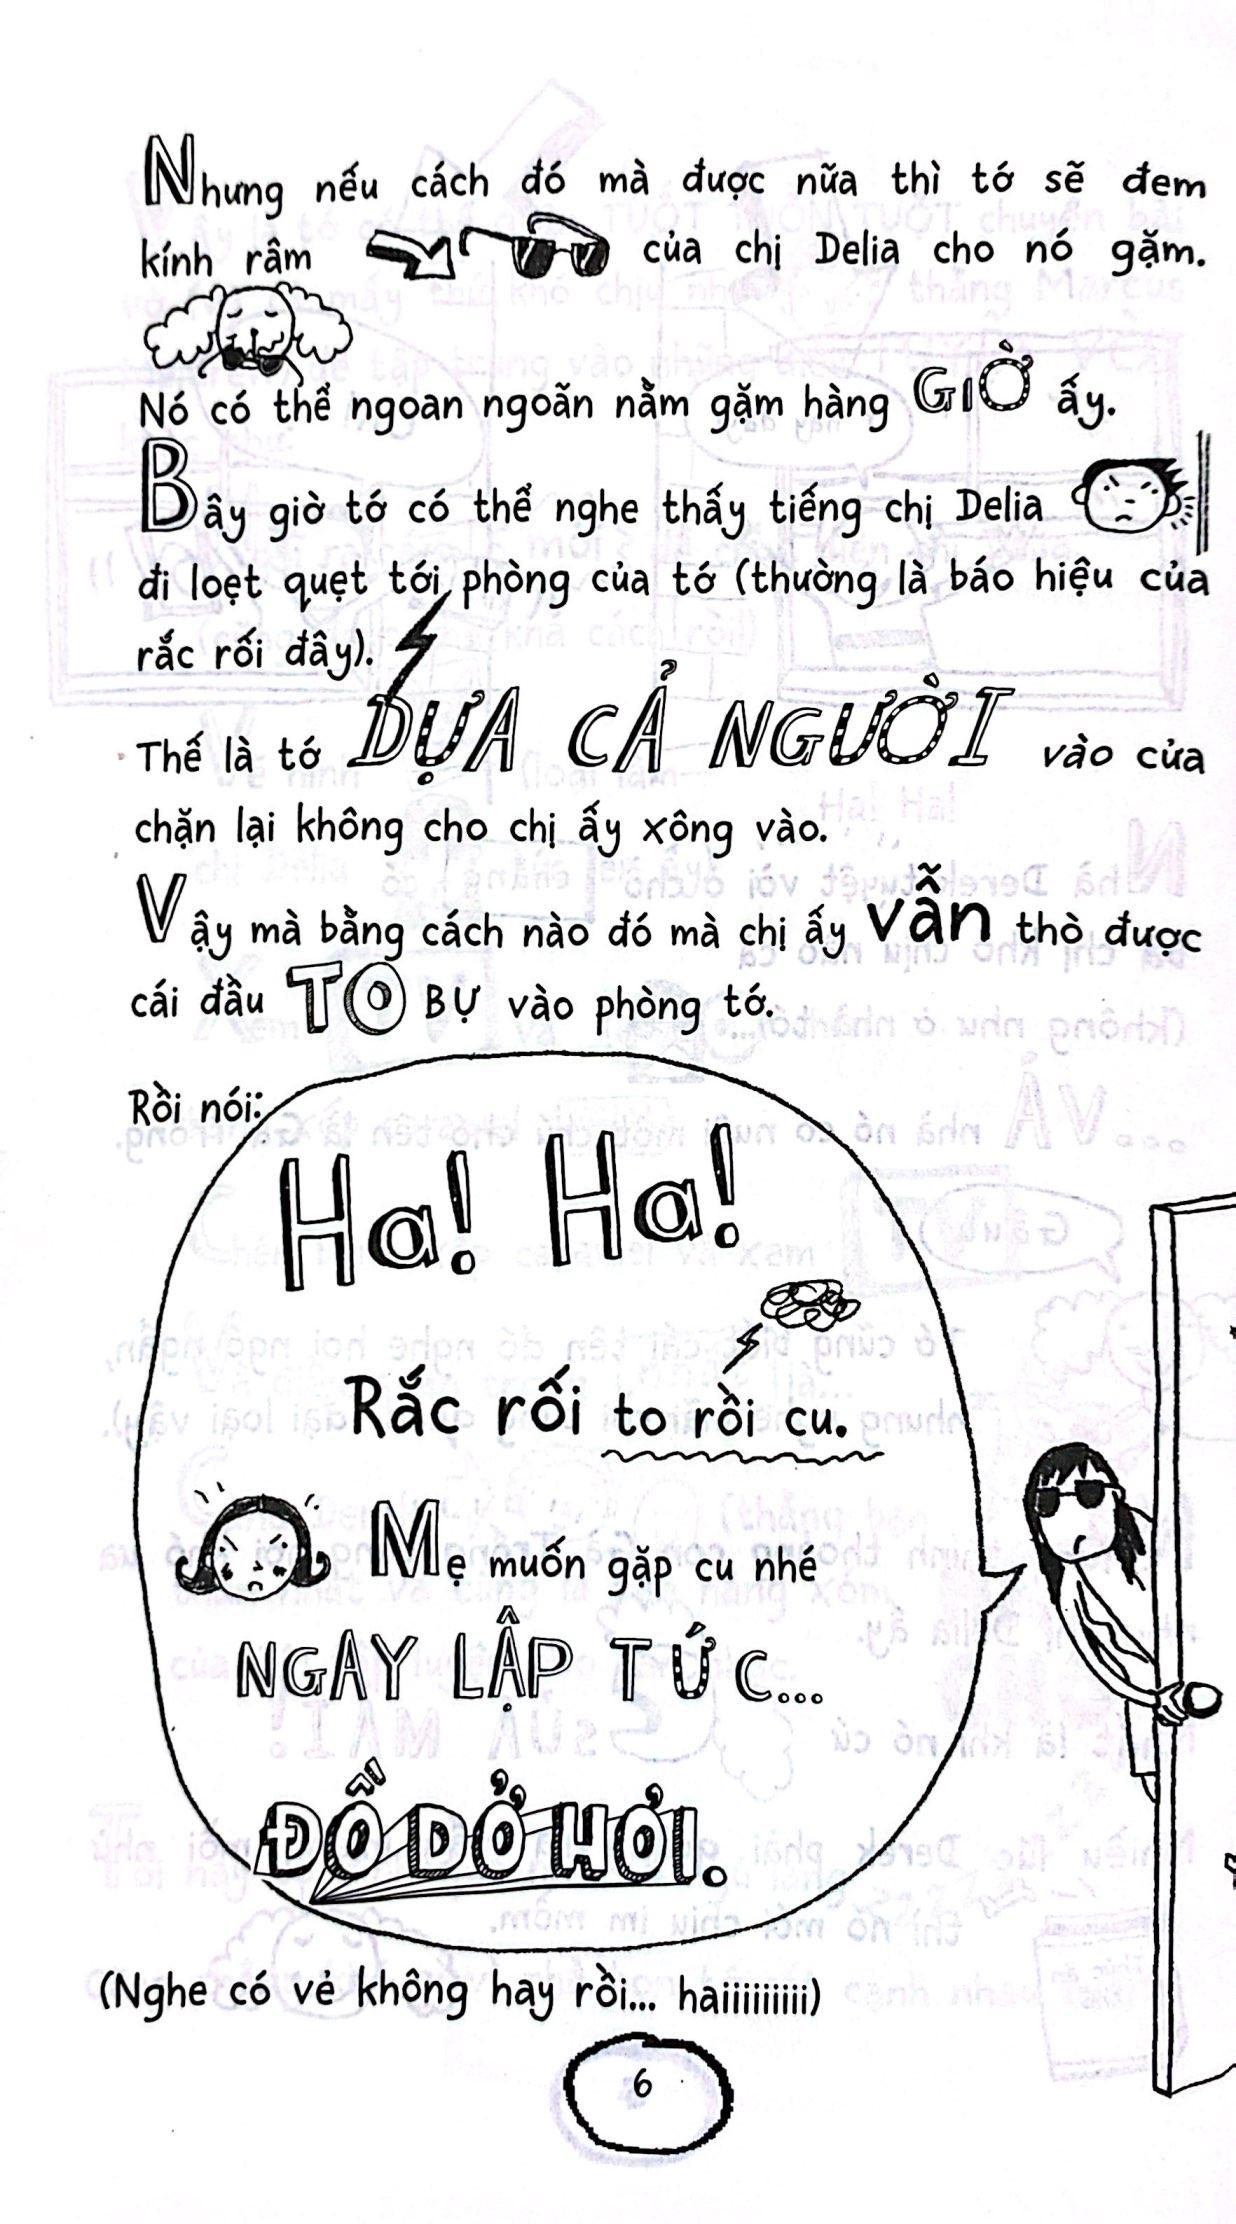 Nhưng nếu cách đó mà được nữa thì tớ sẽ đem
kính râm của chị Delia cho nó gặm.
Nó có thể ngoan ngoãn nằm gặm hàng GIỜ ấy.
Bây giờ tớ có thể nghe thấy tiếng chị Delia
đi loẹt quẹt tới phòng của tớ (thường là báo hiệu của
rắc rối đây).
Thế là tớ DỰA CẢ NGƯỜI vào cửa
chặn lại không cho chị ấy xông vào.
Vậy mà bằng cách nào đó mà chị ấy vẫn thò được
cái đầu TO BỰ vào phòng tớ.
Rồi nói:
Ha! Ha!
Rắc rối to rồi cu.
Mẹ muốn gặp cu nhé
NGAY LẬP TỨC...
ĐỒ DỞ HƠI.
(Nghe có vẻ không hay rồi... haiiiiiiiiii)
6